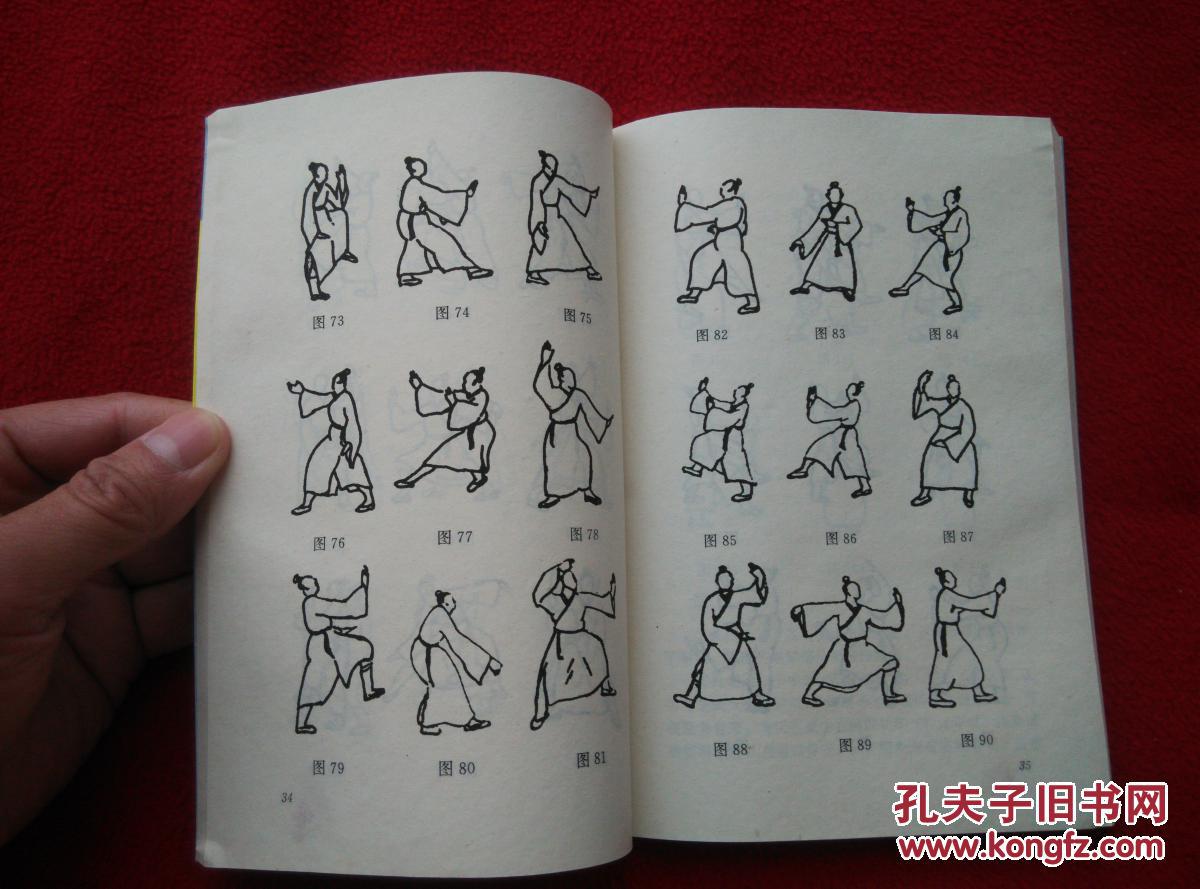 图 73 图 74 图 75
图 76 图 77 图 78
图 79 图 80 图 81
34
图 82 图 83 图 84
图 85 图 86 图 87
图 88 图 89 图 90
35
孔夫子旧书网
www.kongfz.com